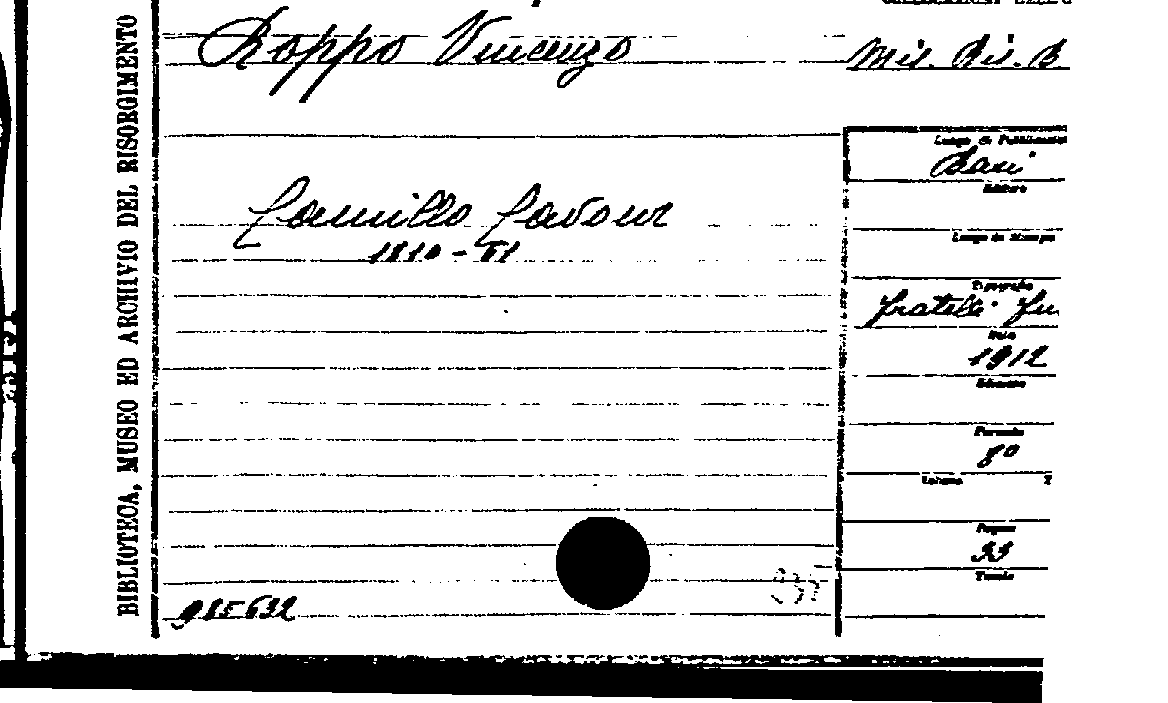 BIBLIOTECA, MUSEO ED ARCHIVIO DEL RISORGIMENTO
Roppo Vincenzo
Mis. Ris. B
Camillo Cavour
1810-61
Luogo di Pubblicazi
Bari
Editore
Luogo di Stampa
Tipografia
fratelli
Data
1912
Edizione
Formato
8°
Volume
Pagine
33
Tavole
985632